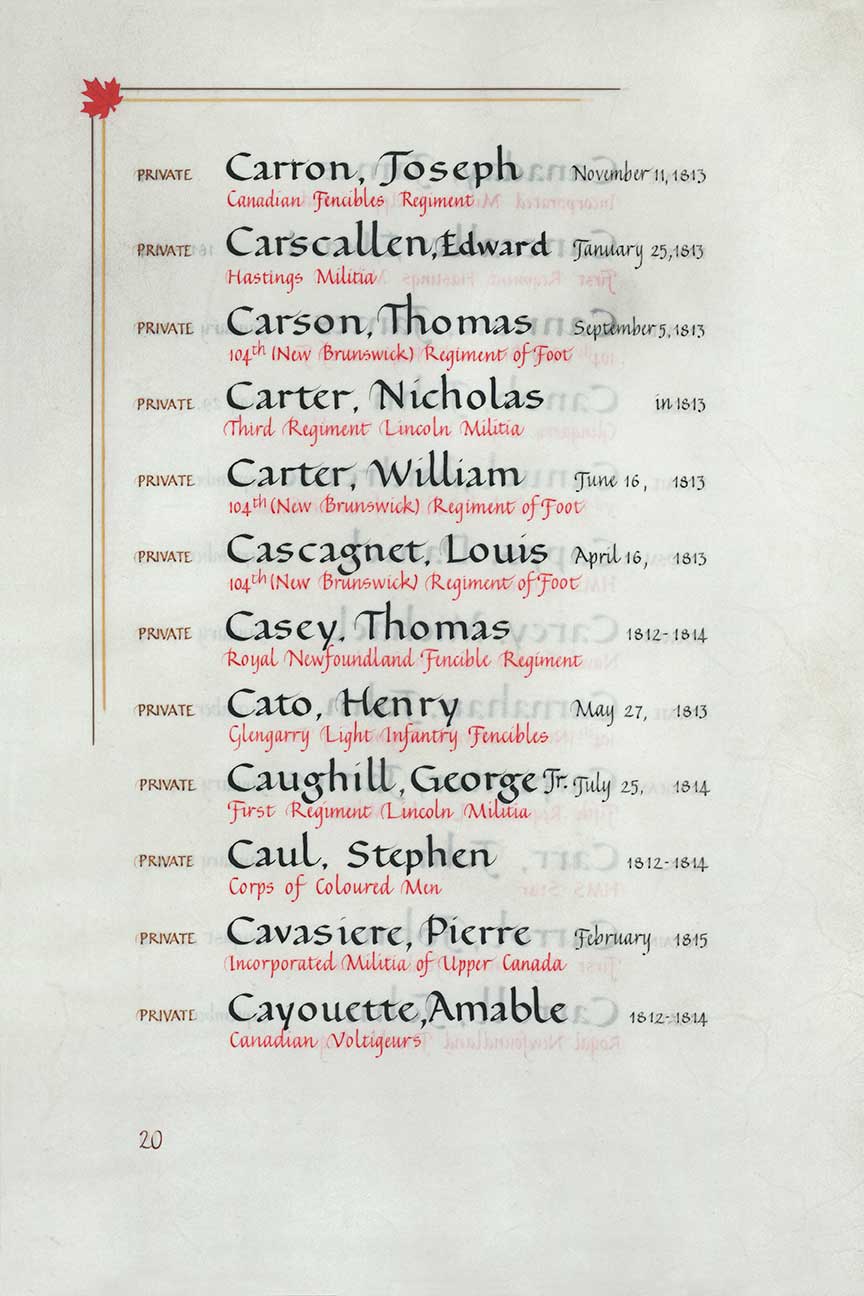 PRIVATE Carron, Joseph November 11, 1813
Canadian Fencibles Regiment
PRIVATE Carscallen, Edward January 25, 1813
Hastings Militia
PRIVATE Carson, Thomas September 5, 1813
104th (New Brunswick) Regiment of Foot
PRIVATE Carter, Nicholas in 1813
Third Regiment Lincoln Militia
PRIVATE Carter, William June 16, 1813
104th (New Brunswick) Regiment of Foot
PRIVATE Cascagnet, Louis April 16, 1813
104th (New Brunswick) Regiment of Foot
PRIVATE Casey, Thomas 1812-1814
Royal Newfoundland Fencible Regiment
PRIVATE Cato, Henry May 27, 1813
Glengarry Light Infantry Fencibles
PRIVATE Caughill, George Jr. July 25, 1814
First Regiment Lincoln Militia
PRIVATE Caul, Stephen 1812-1814
Corps of Coloured Men
PRIVATE Cavasiere, Pierre February 1815
Incorporated Militia of Upper Canada
PRIVATE Cayouette, Amable 1812-1814
Canadian Voltigeurs
20